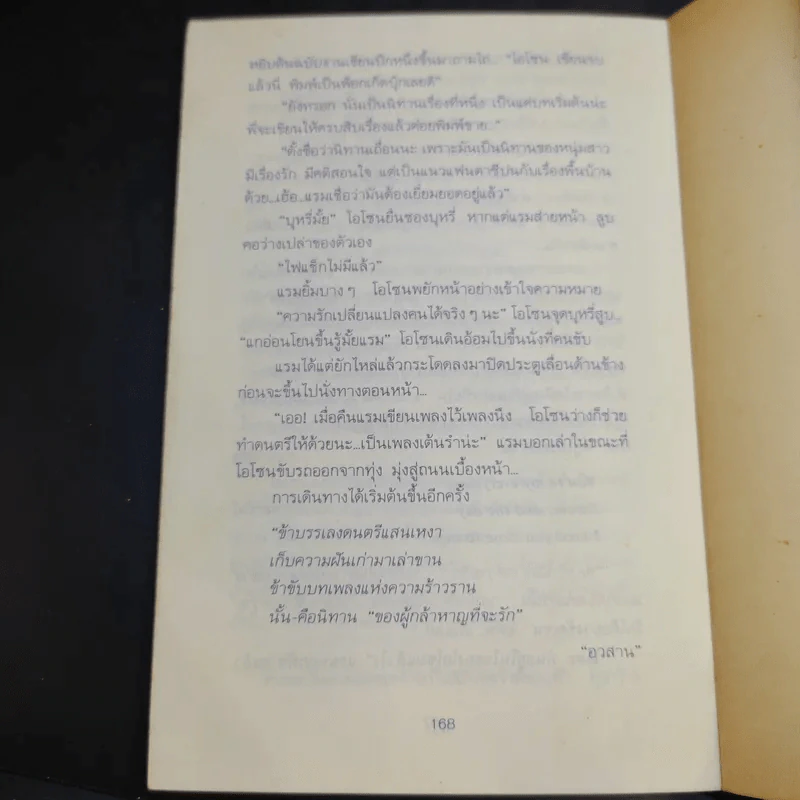 หยิบต้นฉบับงานเขียนปึกหนึ่งขึ้นมาถามไถ่... "โอโซน เขียนจบ
แล้วนี่ พิมพ์เป็นพ็อกเก็ตบุ๊กเลยดิ"
"ยังหรอก นั่นเป็นนิทานเรื่องที่หนึ่ง เป็นแค่บทเริ่มต้นน่ะ
พี่จะเขียนให้ครบสิบเรื่องแล้วค่อยพิมพ์ขาย..."
"ตั้งชื่อว่านิทานเถื่อนนะ เพราะมันเป็นนิทานของหนุ่มสาว
มีเรื่องรัก มีคติสอนใจ แต่เป็นแนวแฟนตาซีปนกับเรื่องพื้นบ้าน
ด้วย...เฮ้อ...แรมเชื่อว่ามันต้องเยี่ยมยอดอยู่แล้ว"
"บุหรี่มั้ย" โอโซนยื่นซองบุหรี่ หากแต่แรมส่ายหน้า ลูบ
คอว่างเปล่าของตัวเอง
"ไฟแช็กไม่มีแล้ว"
แรมยิ้มบาง ๆ โอโซนพยักหน้าอย่างเข้าใจความหมาย
"ความรักเปลี่ยนแปลงคนได้จริง ๆ นะ" โอโซนจุดบุหรี่สูบ...
"แกอ่อนโยนขึ้นรู้มั้ยแรม" โอโซนเดินอ้อมไปขึ้นนั่งที่คนขับ
แรมได้แต่ยักไหล่แล้วกระโดดลงมาปิดประตูเลื่อนด้านข้าง
ก่อนจะขึ้นไปนั่งทางตอนหน้า...
"เออ! เมื่อคืนแรมเขียนเพลงไว้เพลงนึง โอโซนว่างก็ช่วย
ทำดนตรีให้ด้วยนะ...เป็นเพลงเต้นรำน่ะ" แรมบอกเล่าในขณะที่
โอโซนขับรถออกจากทุ่ง มุ่งสู่ถนนเบื้องหน้า...
การเดินทางได้เริ่มต้นขึ้นอีกครั้ง
"ข้าบรรเลงดนตรีแสนเหงา
เก็บความฝันเก่ามาเล่าขาน
ข้าขับบทเพลงแห่งความร้าวราน
นั้น-คือนิทาน "ของผู้กล้าหาญที่จะรัก"
"อวสาน"
168